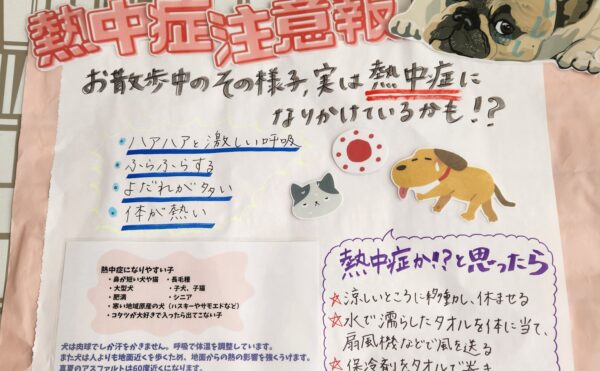 熱中症注意報
お散歩中のその様子,実は熱中症に
なりかけているかも!?
ハァハァと激しい呼吸
ふらふらする
よだれが多い
体が熱い
熱中症になりやすい子
・鼻が短い犬や猫 ・長毛種
・大型犬 ・子犬、子猫
・肥満 ・シニア
・寒い地域原産の犬(ハスキーやサモエドなど)
・コタツが大好きで入ったら出てこない子
犬は肉球でしか汗をかきません。呼吸で体温を調整しています。
また犬は人よりも地面近くを歩くため、地面からの熱の影響を強くうけます。
真夏のアスファルトは60度近くになります。
熱中症か!?と思ったら
☆涼しいところに移動し、休ませる
☆水で濡らしたタオルを体に当て、
扇風機などで風を送る
☆保冷剤をタオルで巻き